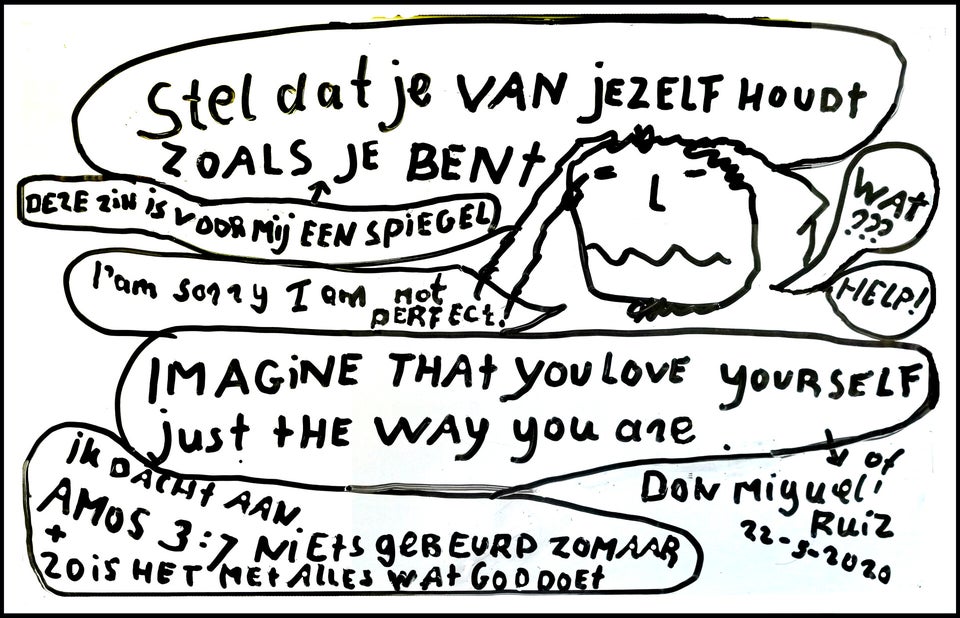 Stel dat je VAN jEZELF HOUDt
ZOALS JE BENt
DEZE ZiN iS VOOR Mij EEN SPiEGEL
WAt
???
I'am sorry I am not
PERFECt!
HELP!
IMAGiNE THAt YOU LOVE YOURSELF
just tHE WAY you are.
of
DON Miguel
RUiZ
22-5-2020
ik DACHt AAN.
AMOS 3:7 NiEtS gEBEURD ZOMAAR
+
ZO iS HET MEt ALLES WAt GOD DOEt